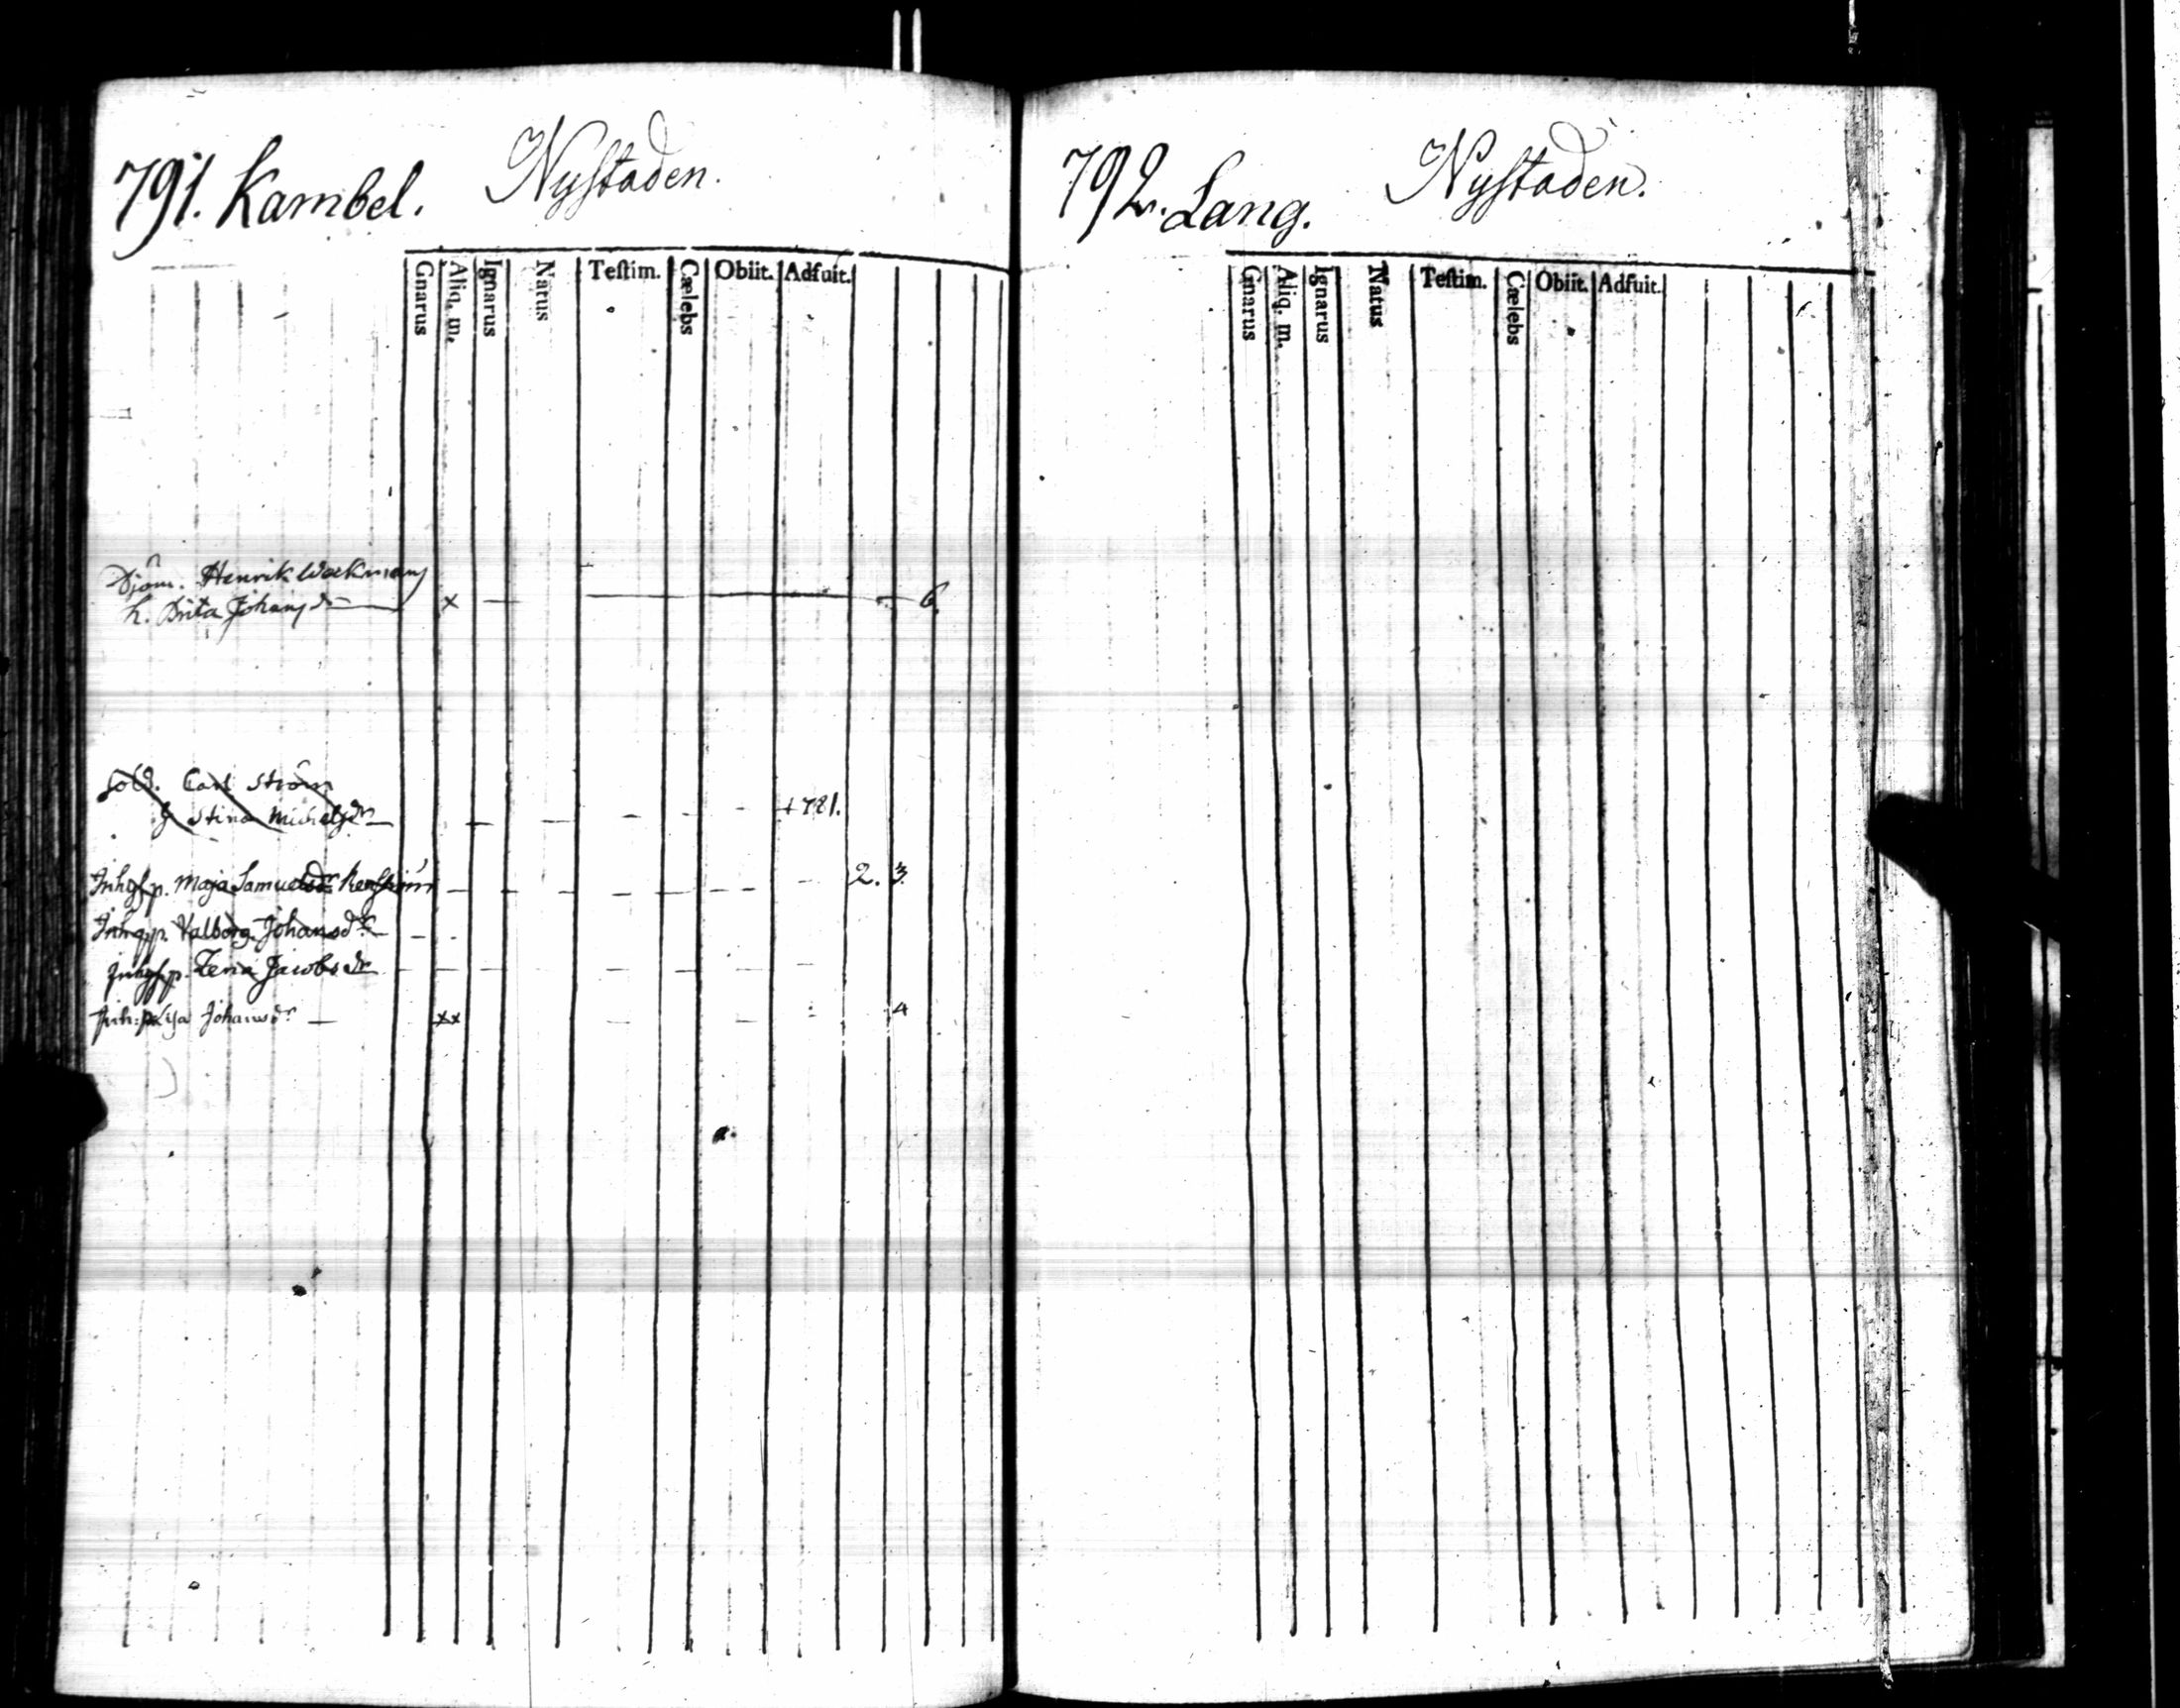 791. Kambel. Nystaden.
Gnarus Aliq. m. Ignarus Natus Testim. Cælebs Obiit. Adfuit.
Sjöm. Henrik Weckmans
h. Brita Johansdr x 6.
Sold. Carl Ström
h Stina Michelsdr +781.
Inhysp. Maja Samuelsdr 2. 3.
Inhysp. Valborg Johansdr
Inhysp. Lena Jacobsdr
Inh: p. Johansdr xx 4
792. Lang. Nystaden.
Gnarus Aliq. m. Ignarus Natus Testim. Cælebs Obiit. Adfuit.